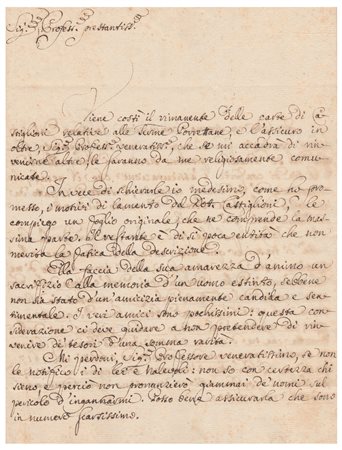 Sigr. Professr. prestantissmo.
Viene costì il rimanente delle carte di Ca-
stiglioni relative alle Terme Porrettane, e l'assicuro in
oltre, Sigr. Professr. veneratissmo, che se mi accadrà di rin-
venirne altre, le saranno da me religiosamente comu-
nicate.
In vece di schierarle io medesimo, come ho pro-
messo, i motivi di lamento del Dott. Castiglioni, le
compiego un foglio originale, che ne comprende la mas-
sima parte. Il restante è di sì poca entità che non
merita la fatica della descrizione.
Ella faccia della sua amarezza d'animo un
sacrifizio alla memoria d'un uomo estinto, sebbene
non sia stato d'un'amicizia pienamente candida e sen-
timentale. I veri amici son pochissimi: questa con-
siderazione ci deve guidare a non pretendere di rin-
venire de' tesori d'una somma rarità.
Mi perdoni, Sigr. Professore veneratissimo, se non
le notifico i di lei malevoli: non so con certezza chi
sieno, e perciò non pronunzierò giammai de' nomi sul
pericolo d'ingannarmi. Posso bensì assicurarla che sono
in numero scarsissimo.